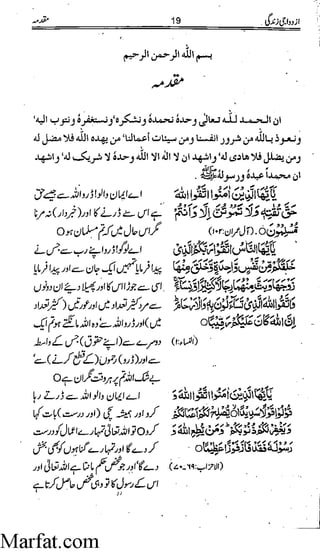 ازدواجی زندگی 19 مقدمہ
بسم اللہ الرحمن الرحیم
مقدمہ
ان الحمد للہ تعالی وحدۂ نحمدۂ ونشکرہ' ونستغفرۂ ونتوب الیہ'
ونعوذ باللہ من شرور انفسنا ومن سیئات أعمالنا' من یھدہ اللہ فلا مضل لہ
ومن یضلل فلا ھادی لہ' واشھد ان لا الہ الا اللہ وحدۂ لا شریک لہ' واشھد
ان محمداً عبدۂ ورسولہ ﷺ.
يٰٓاَيُّهَا الَّذِيْنَ اٰمَنُوا اتَّقُوا اللّٰهَ
حَقَّ تُقٰتِهٖ وَلَا تَمُوْتُنَّ اِلَّا وَاَنْتُمْ
مُّسْلِمُوْنَ ○ (آل عمران:۱۰۲)
يٰٓاَيُّهَا النَّاسُ اتَّقُوْا رَبَّكُمُ الَّذِيْ
خَلَقَكُمْ مِّنْ نَّفْسٍ وَّاحِدَةٍ وَّخَلَقَ مِنْهَا
زَوْجَهَا وَبَثَّ مِنْهُمَا رِجَالًا كَثِيْرًا وَّنِسَآءً
وَاتَّقُوا اللّٰهَ الَّذِيْ تَسَآءَلُوْنَ بِهٖ وَالْاَرْحَامَ
اِنَّ اللّٰهَ كَانَ عَلَيْكُمْ رَقِيْبًا ○
(النساء:۱)
يٰٓاَيُّهَا الَّذِيْنَ اٰمَنُوا اتَّقُوا اللّٰهَ وَ
قُوْلُوْا قَوْلًا سَدِيْدًا يُّصْلِحْ لَكُمْ اَعْمَالَكُمْ
وَيَغْفِرْ لَكُمْ ذُنُوْبَكُمْ وَمَنْ يُّطِعِ اللّٰهَ وَ
رَسُوْلَهٗ فَقَدْ فَازَ فَوْزًا عَظِيْمًا ○
(الاحزاب:۶۹-۷۰)
اے ایمان والو! ڈرو اللہ سے جیسے حق
ہے اس سے ڈرنے کا اور (خبردار) نہ مرنا
مگر اس حال میں کہ تم مسلمان ہو ○
اے لوگو! ڈرو اپنے رب سے جس نے
پیدا فرمایا تمہیں ایک جان سے اور پیدا فرمایا
اسی سے جوڑا اس کا اور پھیلا دیے ان دونوں
سے مرد کثیر تعداد میں اور عورتیں (کثیر تعداد
میں) اور ڈرو اللہ سے وہ اللہ مانگتے ہو تم ایک
دوسرے سے (اپنے حقوق) جس کے واسطہ
سے اور (ڈرو) رحموں (کے قطع کرنے) سے
بے شک اللہ تم پر ہر وقت نگران ہے ○
اے ایمان والو اللہ سے ڈرتے رہا
کرو اور ہمیشہ سچی (اور درست) بات کہا
کرو ○ تو اللہ تعالی تمہارے اعمال کو درست
کر دے گا اور تمہارے گناہوں کو بھی بخش
دے گا' اور جو شخص حکم مانتا ہے اللہ تعالی اور
اس کے رسول کا تو وہی شخص حاصل کرتا ہے
Marfat.com